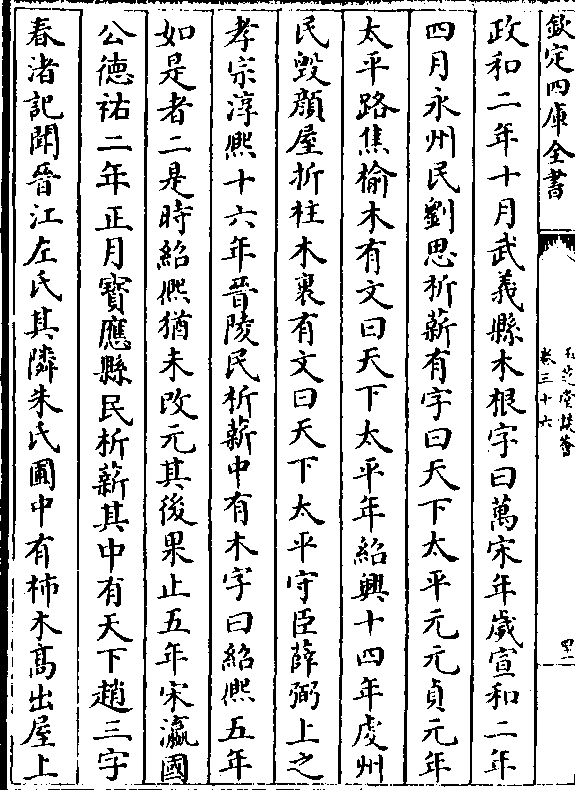 欽定四庫全書
玉芝堂談薈
卷三十六
政和二年十月武義縣木根字曰萬宋年歲宣和二年
四月永州民劉思析薪有字曰天下太平元元貞元年
太平路焦榆木有文曰天下太平年紹興十四年虔州
民毀顏屋折柱木裏有文曰天下太平守臣薛弼上之
孝宗淳熙十六年晉陵民析薪中有木字曰紹熙五年
如是者二是時紹熙猶未改元其後果止五年宋瀛國
公德祐二年正月寶應縣民析薪其中有天下趙三字
春渚記聞晉江左氏其隣朱氏圃中有柿木高出屋上